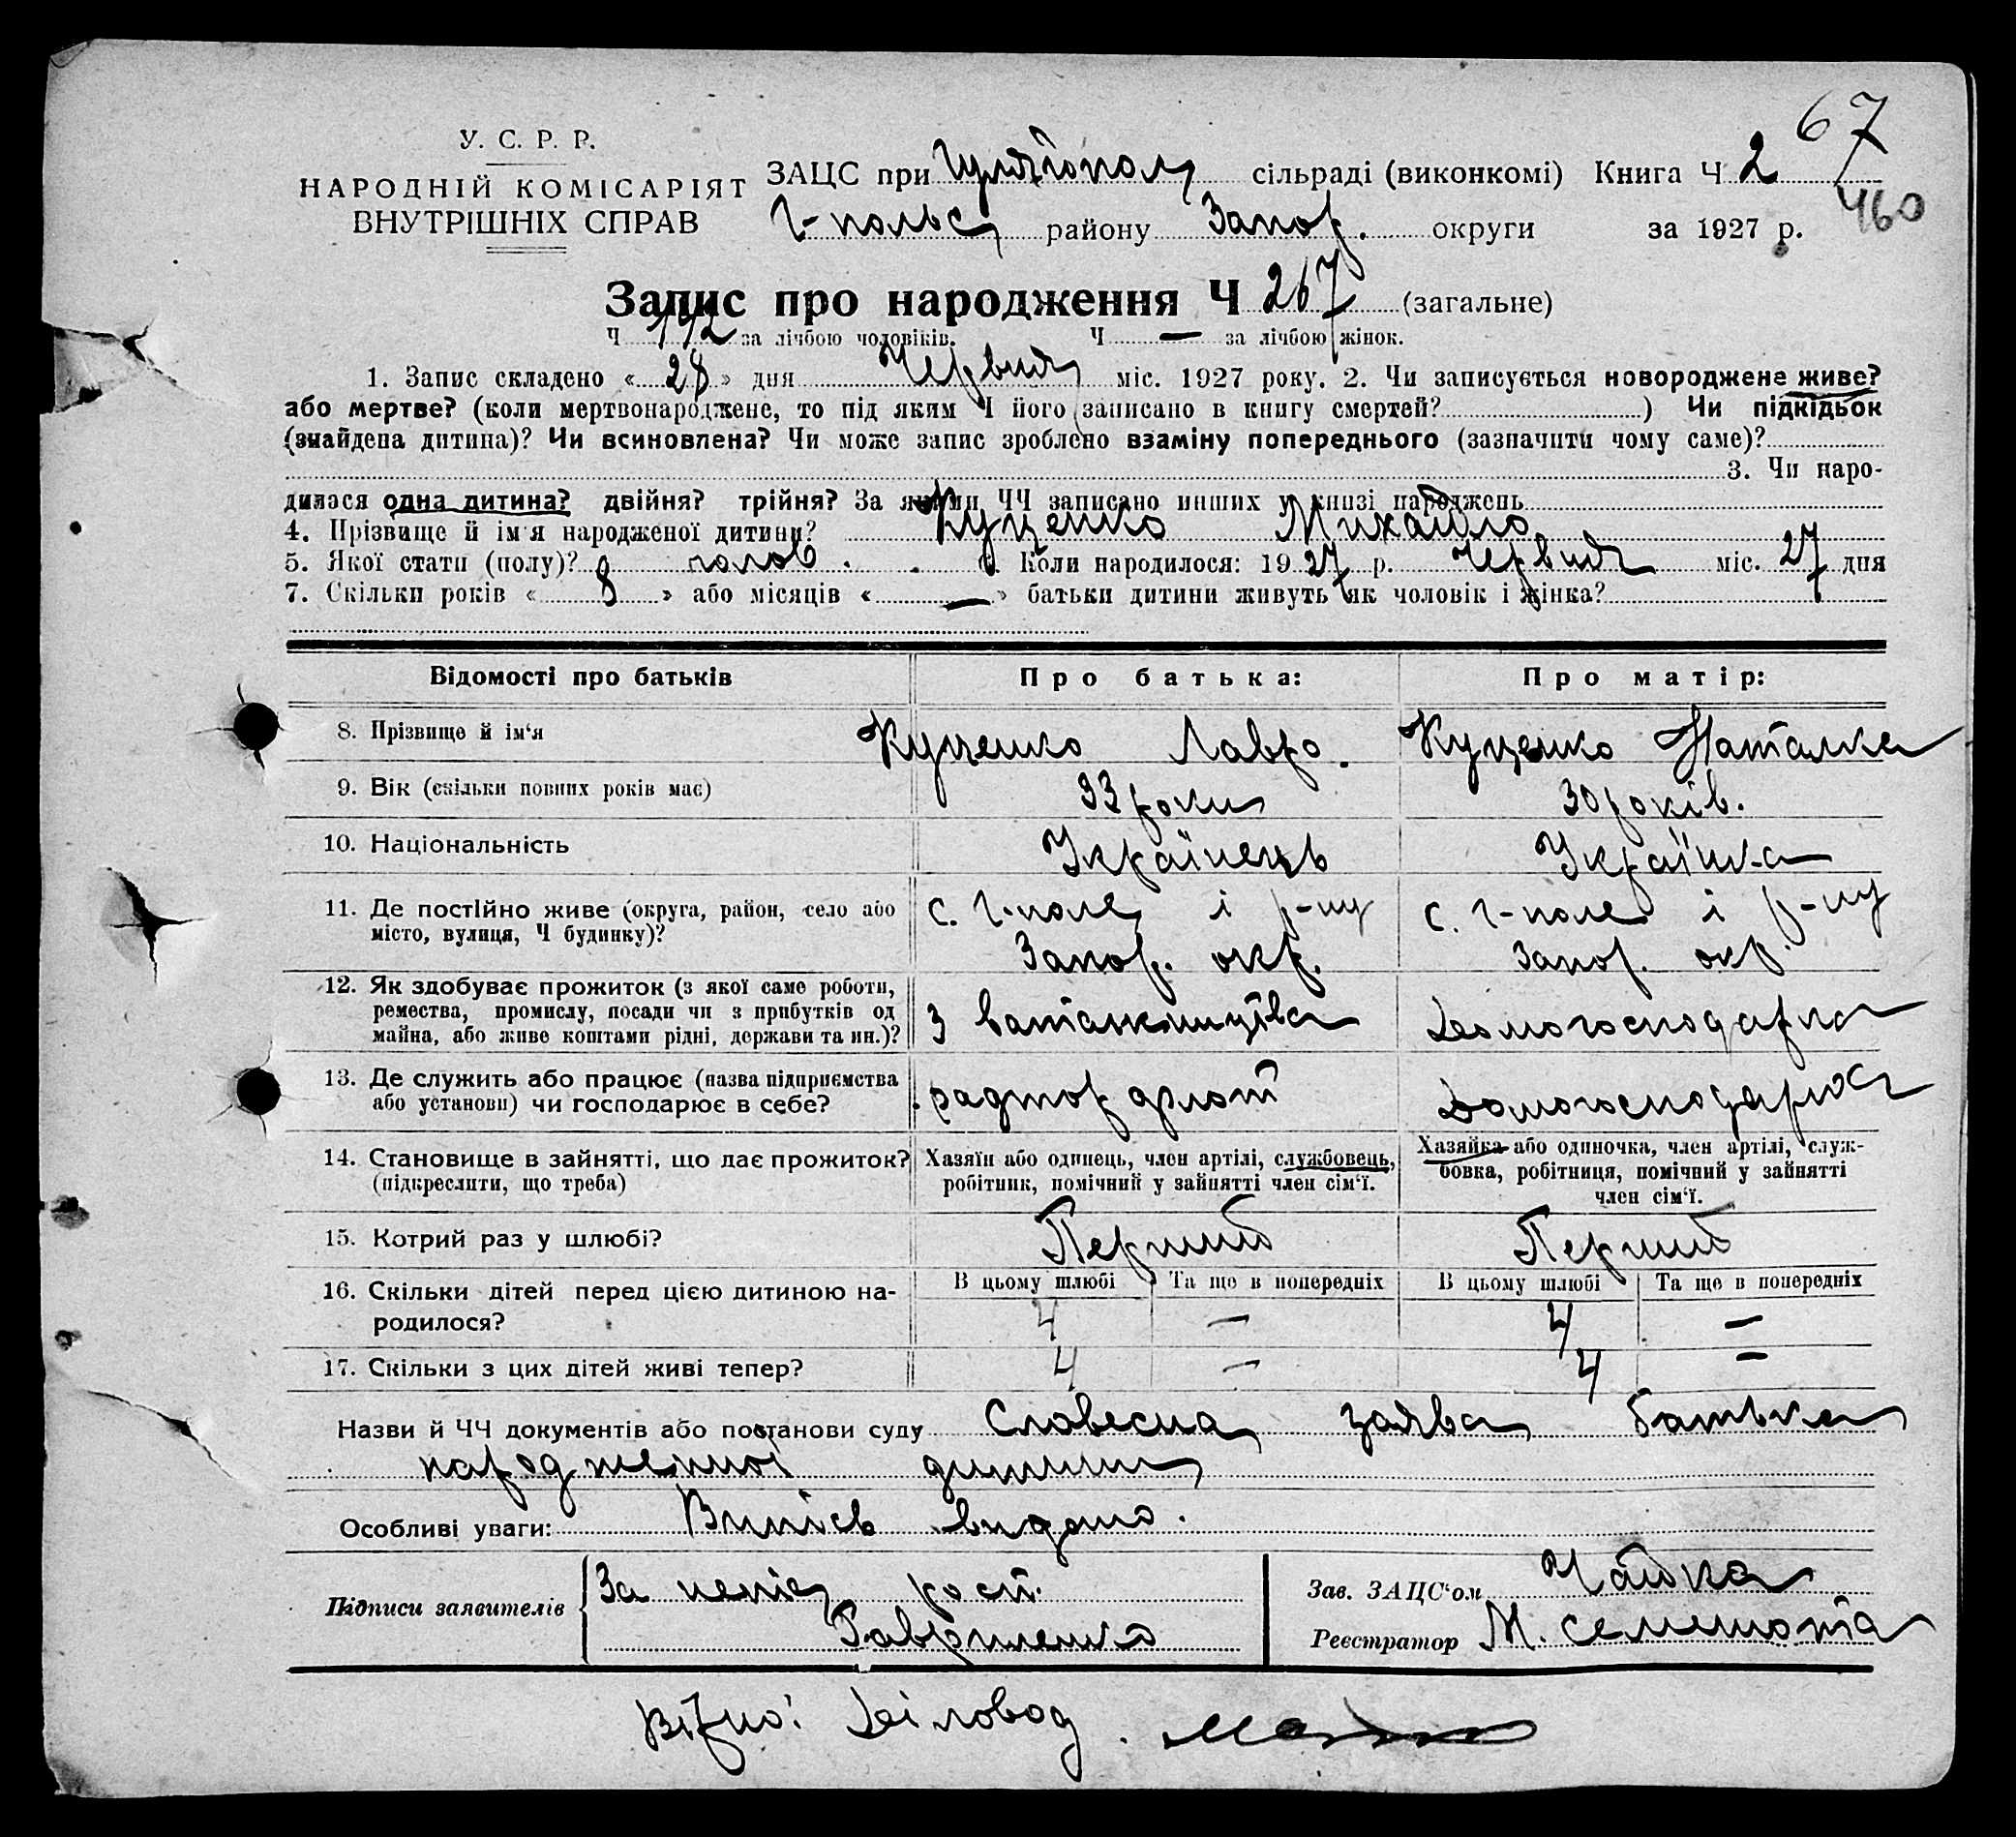 67
У. С. Р. Р.
НАРОДНІЙ КОМІСАРІЯТ
ВНУТРІШНІХ СПРАВ
ЗАЦС при Гуляйполі сільраді (виконкомі) Книга Ч 2
460
Г-польс району Запор. округи за 1927 р.
Запис про народження Ч 267 (загальне)
Ч 142 за лічбою чоловіків. Ч — за лічбою жінок.
1. Запис складено « 28 » дня Червня міс. 1927 року. 2. Чи записується новороджене живе?
або мертве? (коли мертвонароджене, то під яким Ч його записано в книгу смертей? ) Чи підкідьок
(знайдена дитина)? Чи всиновлена? Чи може запис зроблено взаміну попереднього (зазначити чому саме)?
3. Чи наро-
дилася одна дитина? двійня? трійня? За якими ЧЧ записано инших у книзі народжень
4. Прізвище й ім'я народженої дитини? Куценко Михайло
5. Якої стати (полу)? чолов. Коли народилося: 1927 р. Червня міс. 27 дня
7. Скільки років « 8 » або місяців « — » батьки дитини живуть як чоловік і жінка?
Відомості про батьків Про батька: Про матір:
8. Прізвище й ім'я Куценко Лавро. Куценко Наталка
9. Вік (скільки повних років має) 33 роки 30 років.
10. Національність Українець Українка
11. Де постійно живе (округа, район, село або с. Г-поле і р-ну с. Г-поле і р-ну
місто, вулиця, Ч будинку)? Запор. окр. Запор. окр.
12. Як здобуває прожиток (з якої саме роботи,
ремества, промислу, посади чи з прибутків од з Домогосподарка
майна, або живе коштами рідні, держави та ин.)?
13. Де служить або працює (назва підприємства
або установи) чи господарює в себе? Домогосподарка
14. Становище в зайнятті, що дає прожиток? Хазяїн або одинець, член артілі, службовець, Хазяйка або одиночка, член артілі, служ-
(підкреслити, що треба) робітник, помічний у зайнятті член сім'ї. бовка, робітниця, помічний у зайнятті
член сім'ї.
15. Котрий раз у шлюбі? Перший Перший
16. Скільки дітей перед цією дитиною на- В цьому шлюбі Та що в попередніх В цьому шлюбі Та що в попередніх
родилося? 4 — 4 —
17. Скільки з цих дітей живі тепер? 4 — 4 —
Назви й ЧЧ документів або постанови суду Словесна заява батька
народженної дитини
Особливі уваги: Випісь видано.
Підписи заявителів За непис рост. Зав. ЗАЦС'ом Чайка
Гавриленко Реєстратор М. Семенюта
Вірно: Діловод.